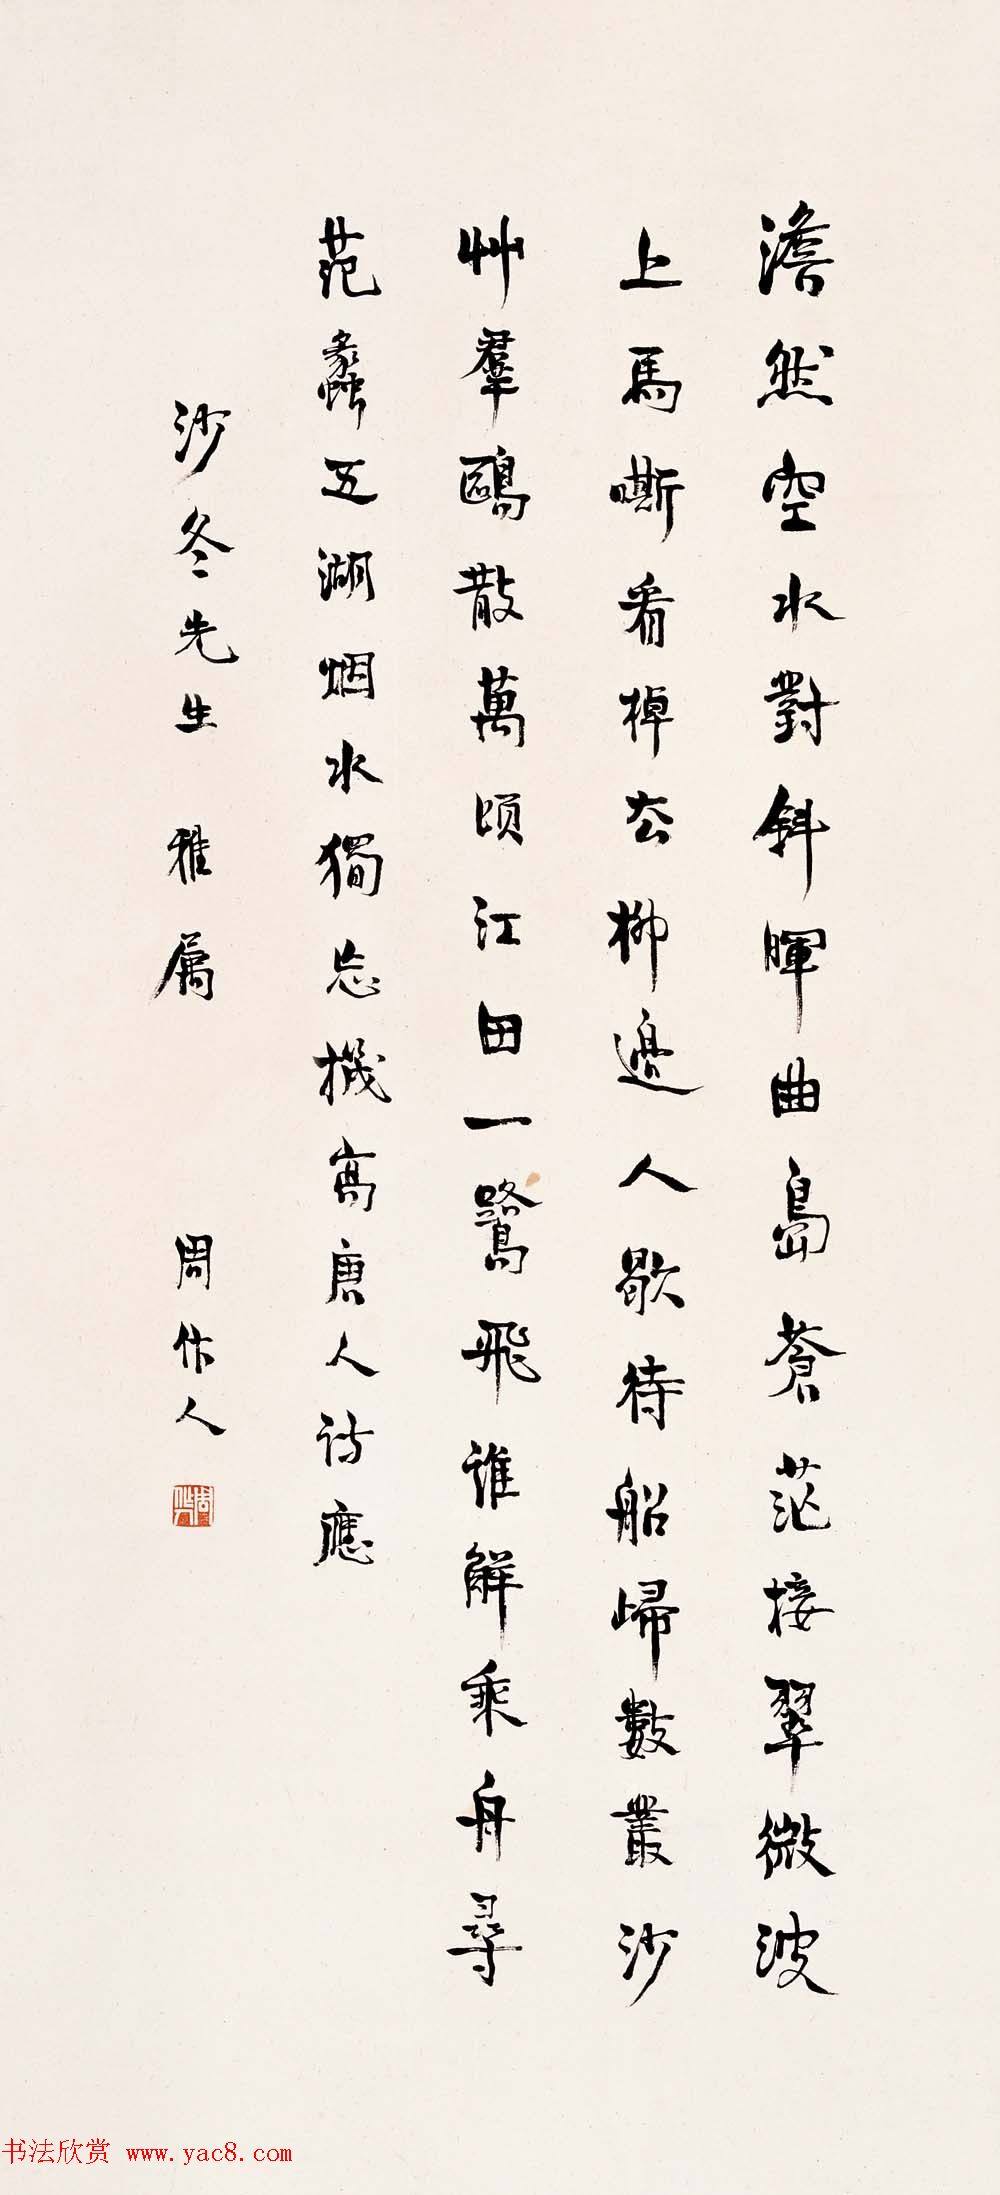 澹然空水對斜暉曲島蒼茫接翠微波
上馬嘶看棹去柳邊人歇待船歸數叢沙
艸羣鷗散萬頃江田一鷺飛誰解乘舟尋
范蠡五湖烟水獨忘機寫唐人詩應
沙冬先生 雅屬
周作人
书法欣赏 www.yac8.com